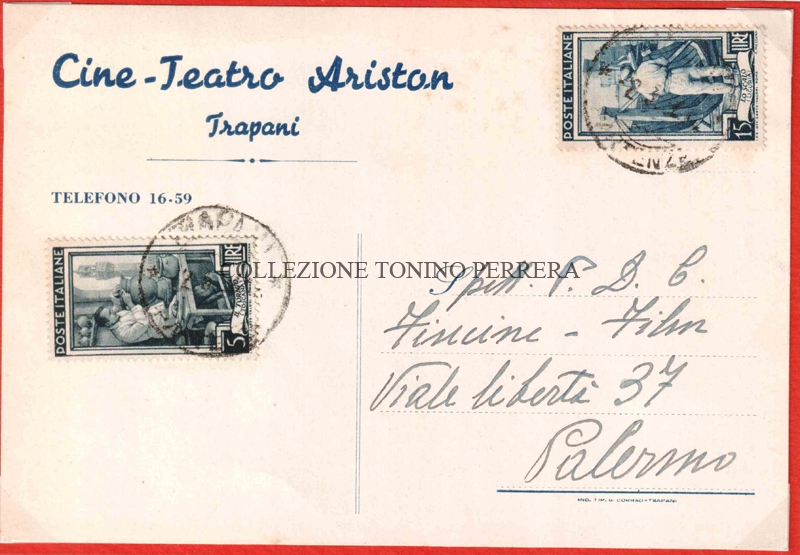 Cine-Teatro Ariston
Trapani
TELEFONO 16-59
POSTE ITALIANE
LIRE
15
POSTE ITALIANE
LIRE
5
TRAPANI
COLLEZIONE TONINO PERRERA
Spett. F. D. C.
Fincine - Film
Viale libertà 37
Palermo
IND. TIP. G. CORRAO-TRAPANI